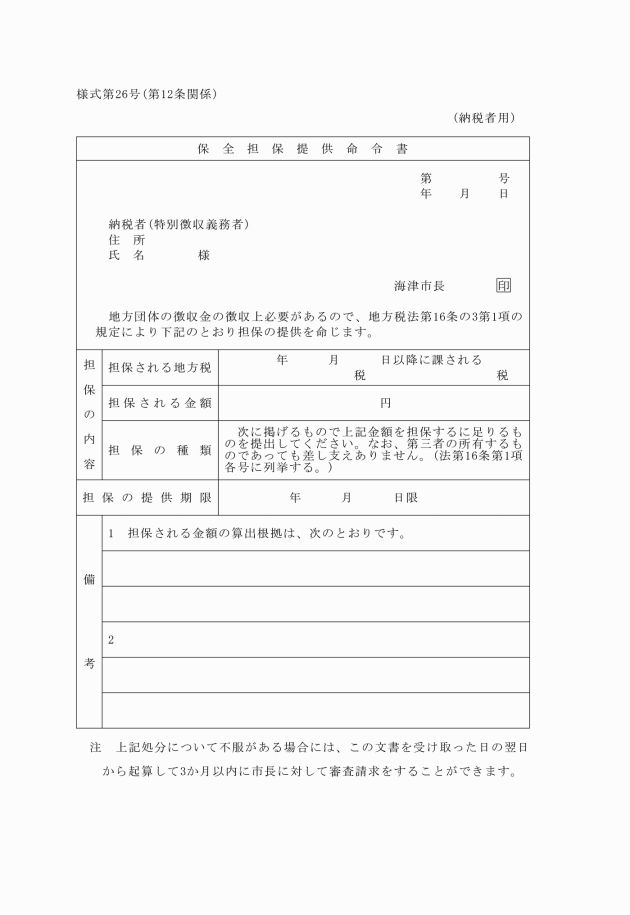 様式第26号(第12条関係)
(納税者用)
保全担保提供命令書
第 号
年 月 日
納税者(特別徴収義務者)
住 所
氏 名 様
海津市長 印
地方団体の徴収金の徴収上必要があるので、地方税法第16条の3第1項の
規定により下記のとおり担保の提供を命じます。
担保の内容
担保される地方税
年 月 日以降に課される
税 税
担保される金額
円
担保の種類
次に掲げるもので上記金額を担保するに足りるも
のを提出してください。なお、第三者の所有するも
のであっても差し支えありません。(法第16条第1項
各号に列挙する。)
担保の提供期限
年 月 日限
備考
1 担保される金額の算出根拠は、次のとおりです。
2
注 上記処分について不服がある場合には、この文書を受け取った日の翌日
から起算して3か月以内に市長に対して審査請求をすることができます。